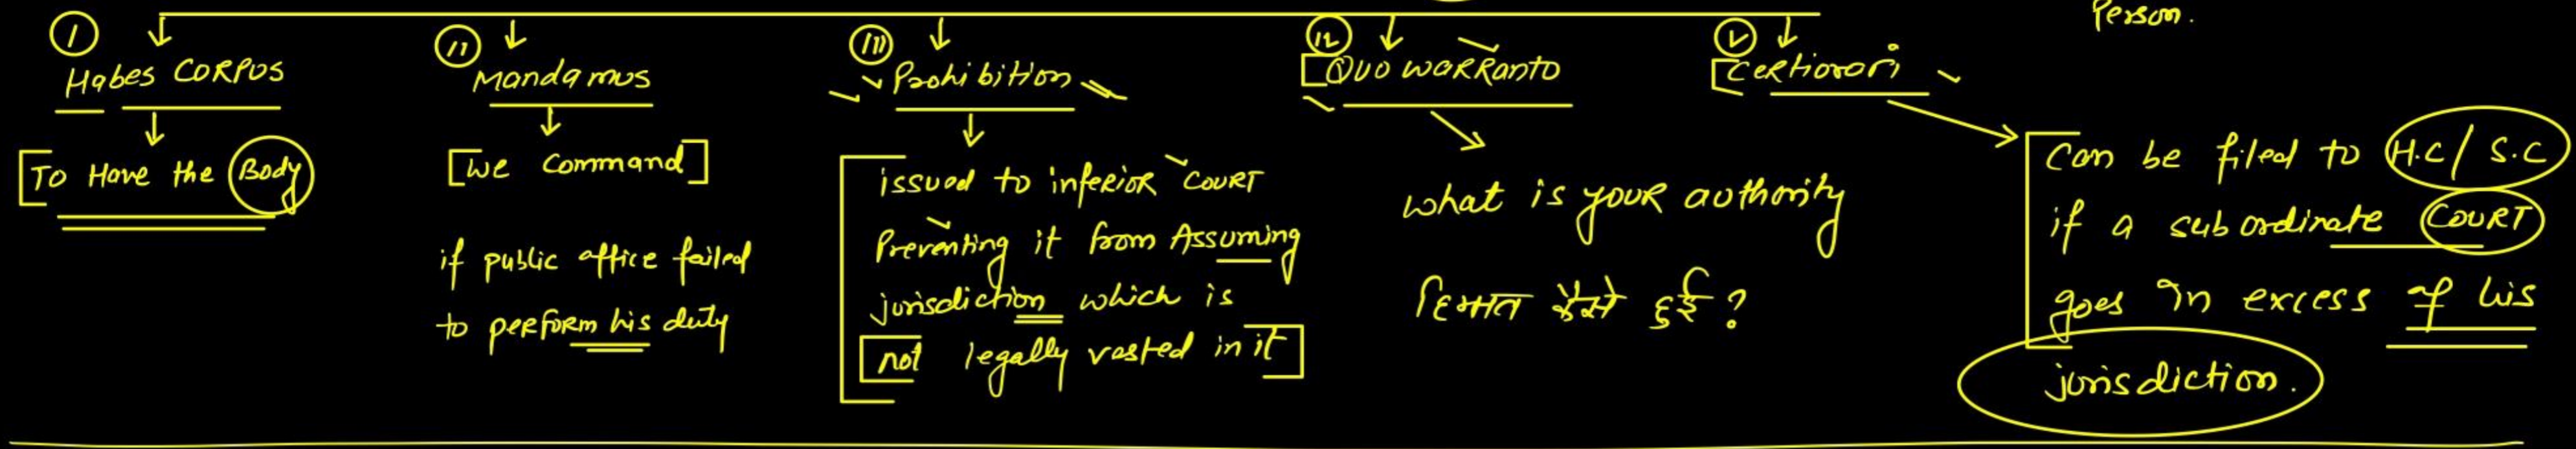 Person.
(I) Habes CORPUS
[To Have the Body
(II) Mandamus
[we Command]
if public office failed
to perform his duty
(III) Prohibition
issued to inferior Court
Preventing it from Assuming
jurisdiction which is
[not legally vested in it]
(IV) [QUO WARRANTO
what is your authority
हिम्मत कैसे हुई ?
(V) [Certiorari
Can be filed to H.C / S.C
if a subordinate COURT
goes in excess of his
jurisdiction.